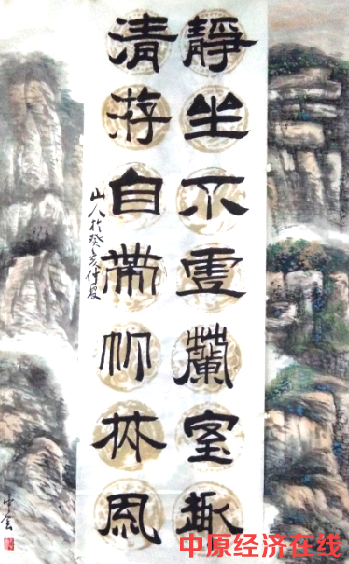 靜坐不虛蘭室趣
清游自帶竹林風
山人於癸亥仲夏
中原经济在线